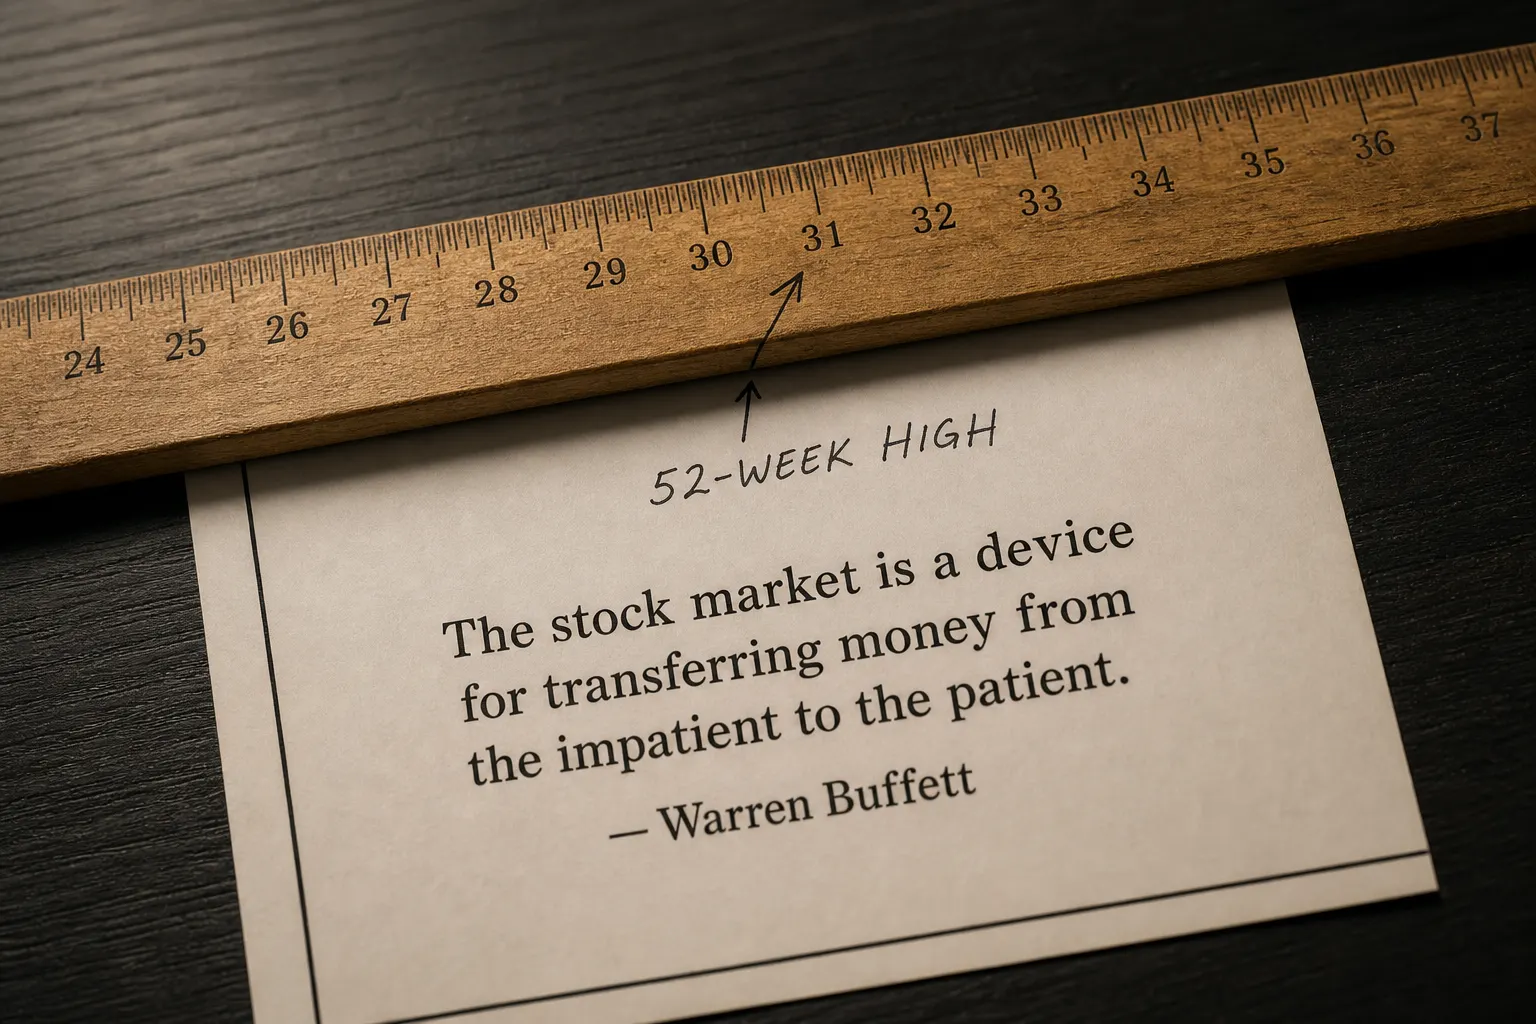 24 25 26 27 28 29 30 31 32 33 34 35 36 37
52-WEEK HIGH
The stock market is a device
for transferring money from
the impatient to the patient.
— Warren Buffett